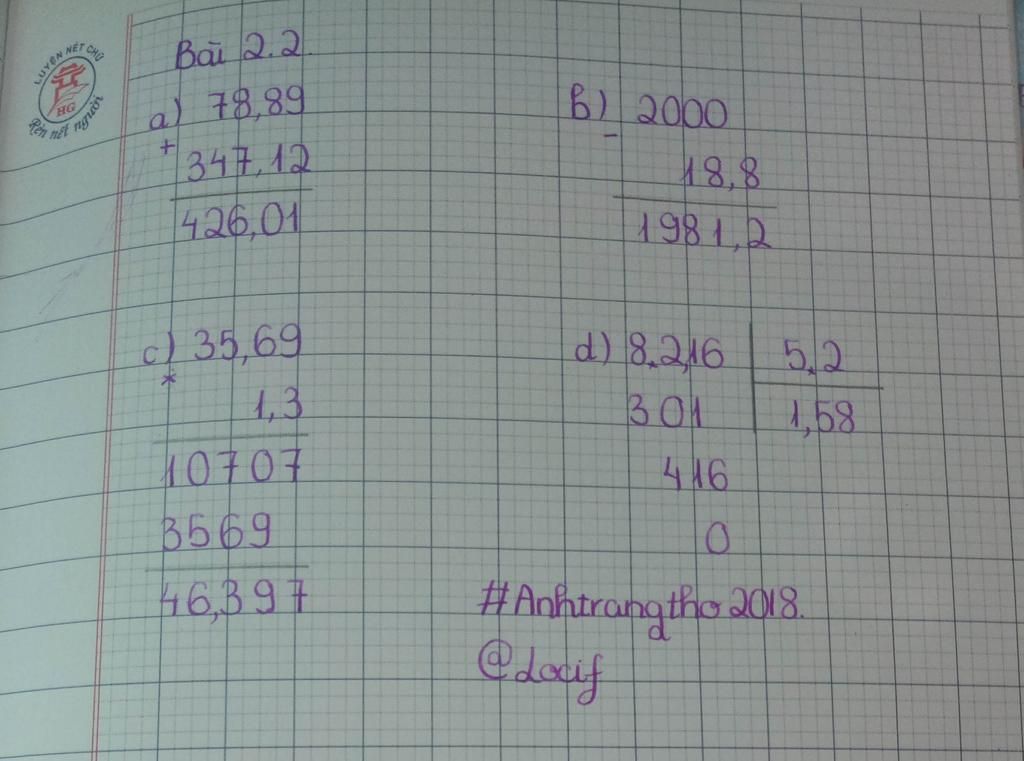 LUYỆN NÉT CHỮ
HG
Rèn nết người
Bài 2.2
a) 78,89
+
347,12
426,01
b) 2000
-
18,8
1981,2
c) 35,69
*
1,3
10707
3569
46,397
d) 8,2,16 5,2
301 1,58
416
0
#Anhtrangtho2018.
@Locif